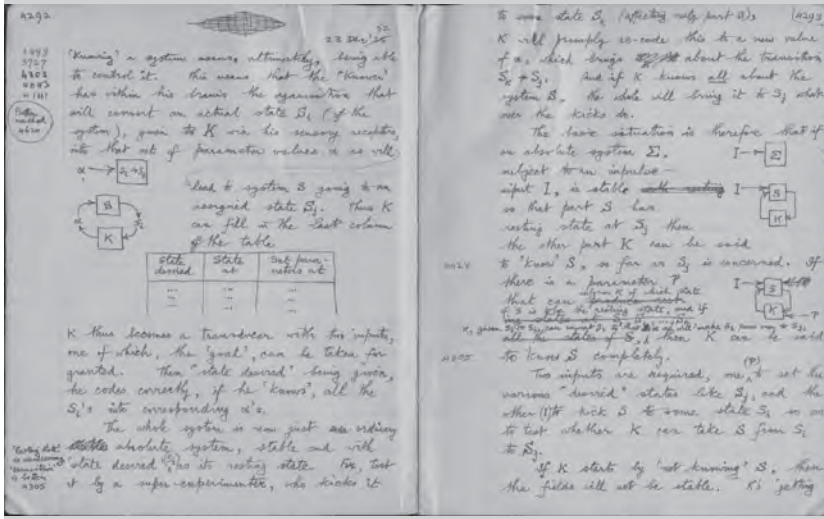 4292
23 Dec '52
'Knowing' a system means, ultimately, being able
to control it. This means that the "Knower"
has within his brain the organisation that
will convert an actual state Si (of the
system), given to K via his sensory receptors,
into that set of parameter values α as will
4303
4620
α
Si→Sj
S
K
α
lead to system S going to an
assigned state Sj. Thus K
can fill in the last column
of the table
State desired
State at
Set para-
meters at
...
...
...
...
...
...
K thus becomes a transducer with two inputs,
one of which, the 'goal', can be taken for
granted. Then "state desired" being given,
he codes correctly, if he 'knows', all the
Si's into corresponding α's.
The whole system is now just an ordinary
absolute system, stable and with
'state desired' as its resting state. For, test
it by a super-experimenter, who kicks it
is better
4305
4293
to some state Sk (affecting only part S);
K will promptly re-code this to a new value
of α, which brings about the transition
Sk → Sj. And if K knows all about the
system S, the whole will bring it to Sj what-
ever the kicks do.
The basic situation is therefore that if
an absolute system Σ,
I → Σ
subject to an impulse-
input I, is stable
I → S
K
so that part S has
resting state at Sj then
the other part K can be said
to 'know' S, so far as Sj is concerned. If
there is a parameter P
that can
inform K of which state
of S is to be the resting state, and if
I → S
K ← P
then K can be said
4305
to know S completely.
Two inputs are required, one (P) to set the
various "desired" states like Sj, and the
other (I) to kick S to some state Si so as
to test whether K can take S from Si
to Sj.
If K starts by 'not knowing' S, then
the fields will not be stable. K's 'getting